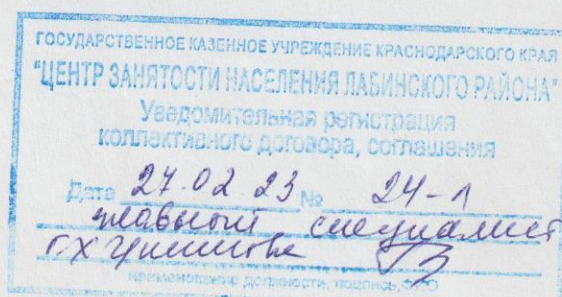 ГОСУДАРСТВЕННОЕ КАЗЕННОЕ УЧРЕЖДЕНИЕ КРАСНОДАРСКОГО КРАЯ
"ЦЕНТР ЗАНЯТОСТИ НАСЕЛЕНИЯ ЛАБИНСКОГО РАЙОНА"
Уведомительная регистрация
коллективного договора, соглашения
Дата 27.02.23 № 24-1
главный специалист
Г.Х
наименование должности, подпись, ФИО